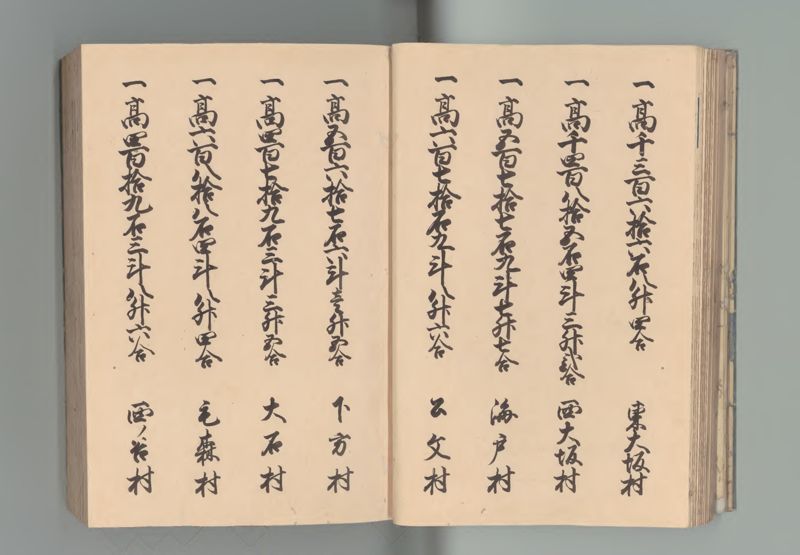 一高千三百六拾六石八升四合 東大坂村
一高千四百八拾五石四斗三升弐合 西大坂村
一高五百七拾七石九斗七升七合 海戸村
一高六百七拾石九斗八升六合 公文村
一高五百六拾七石六斗壱升五合 下方村
一高四百七拾九石三斗三升五合 大石村
一高六百八拾八石四斗八升四合 毛森村
一高四百拾九石三斗八升六合 西ノ谷村